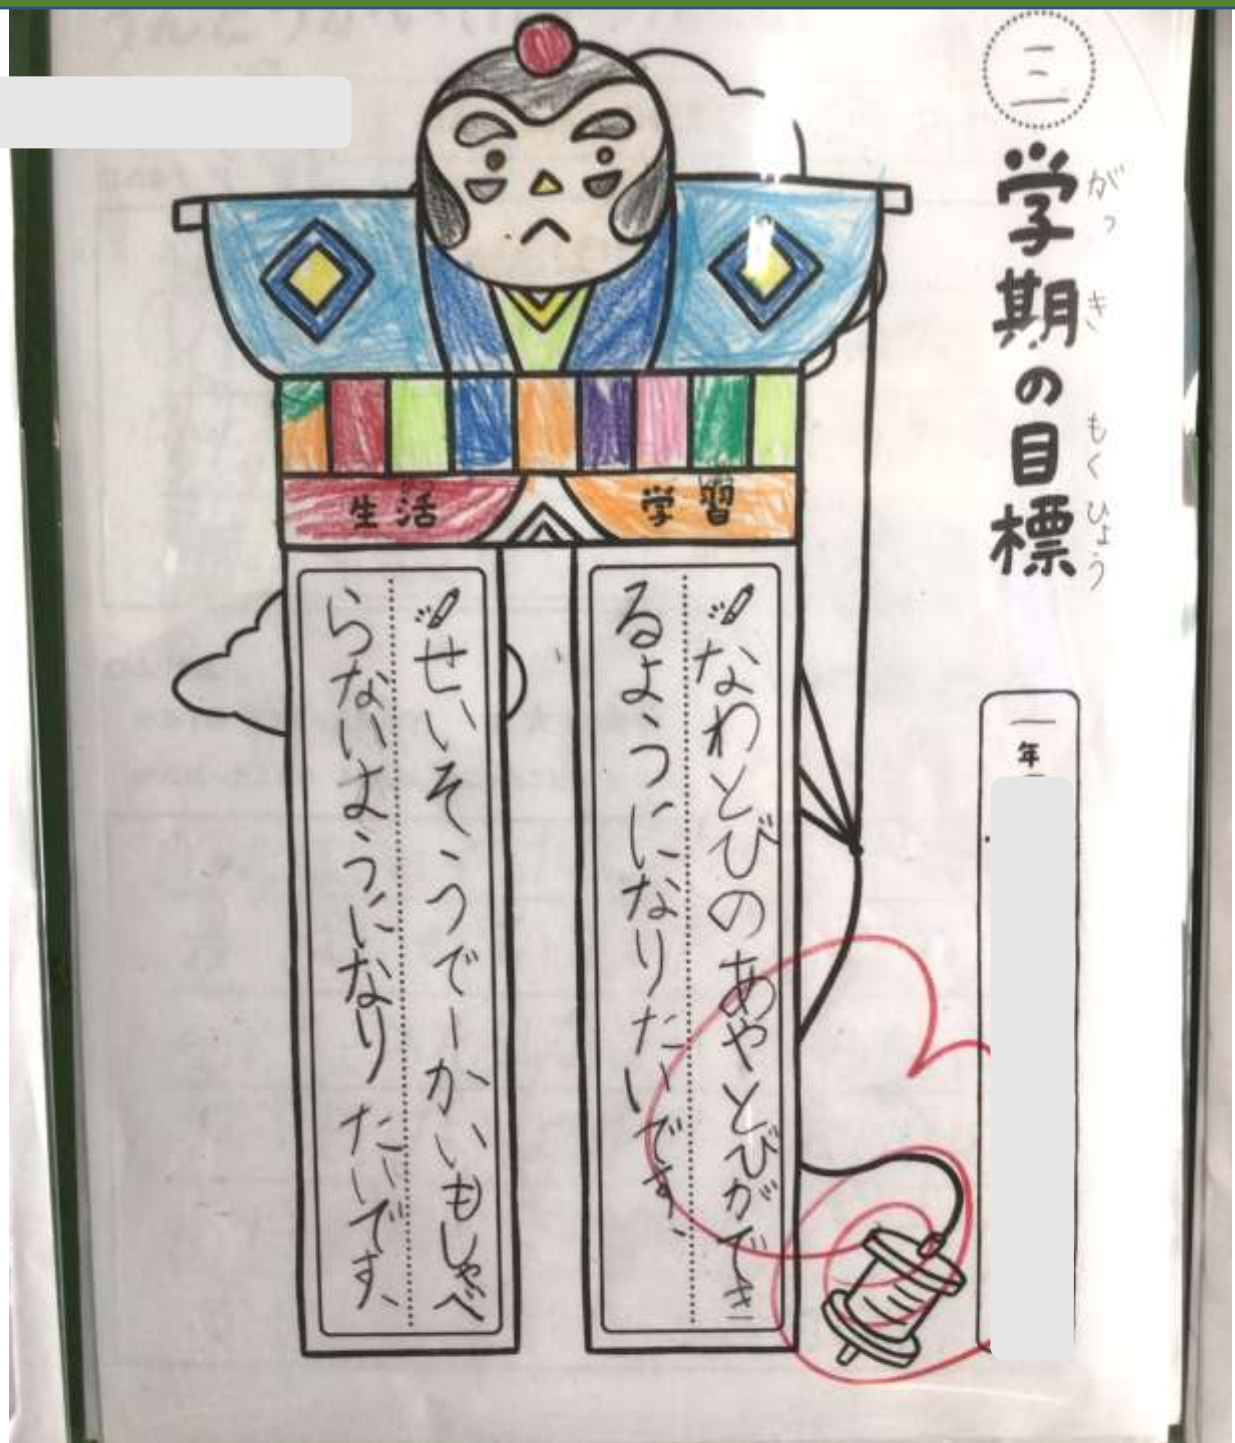 三学期の目標
がっ き もくひょう
一年
学習
なわとびのあやとびができ
るようになりたいです、
生活
せいそうでーかいもしゃべ
らないようになりたいです、